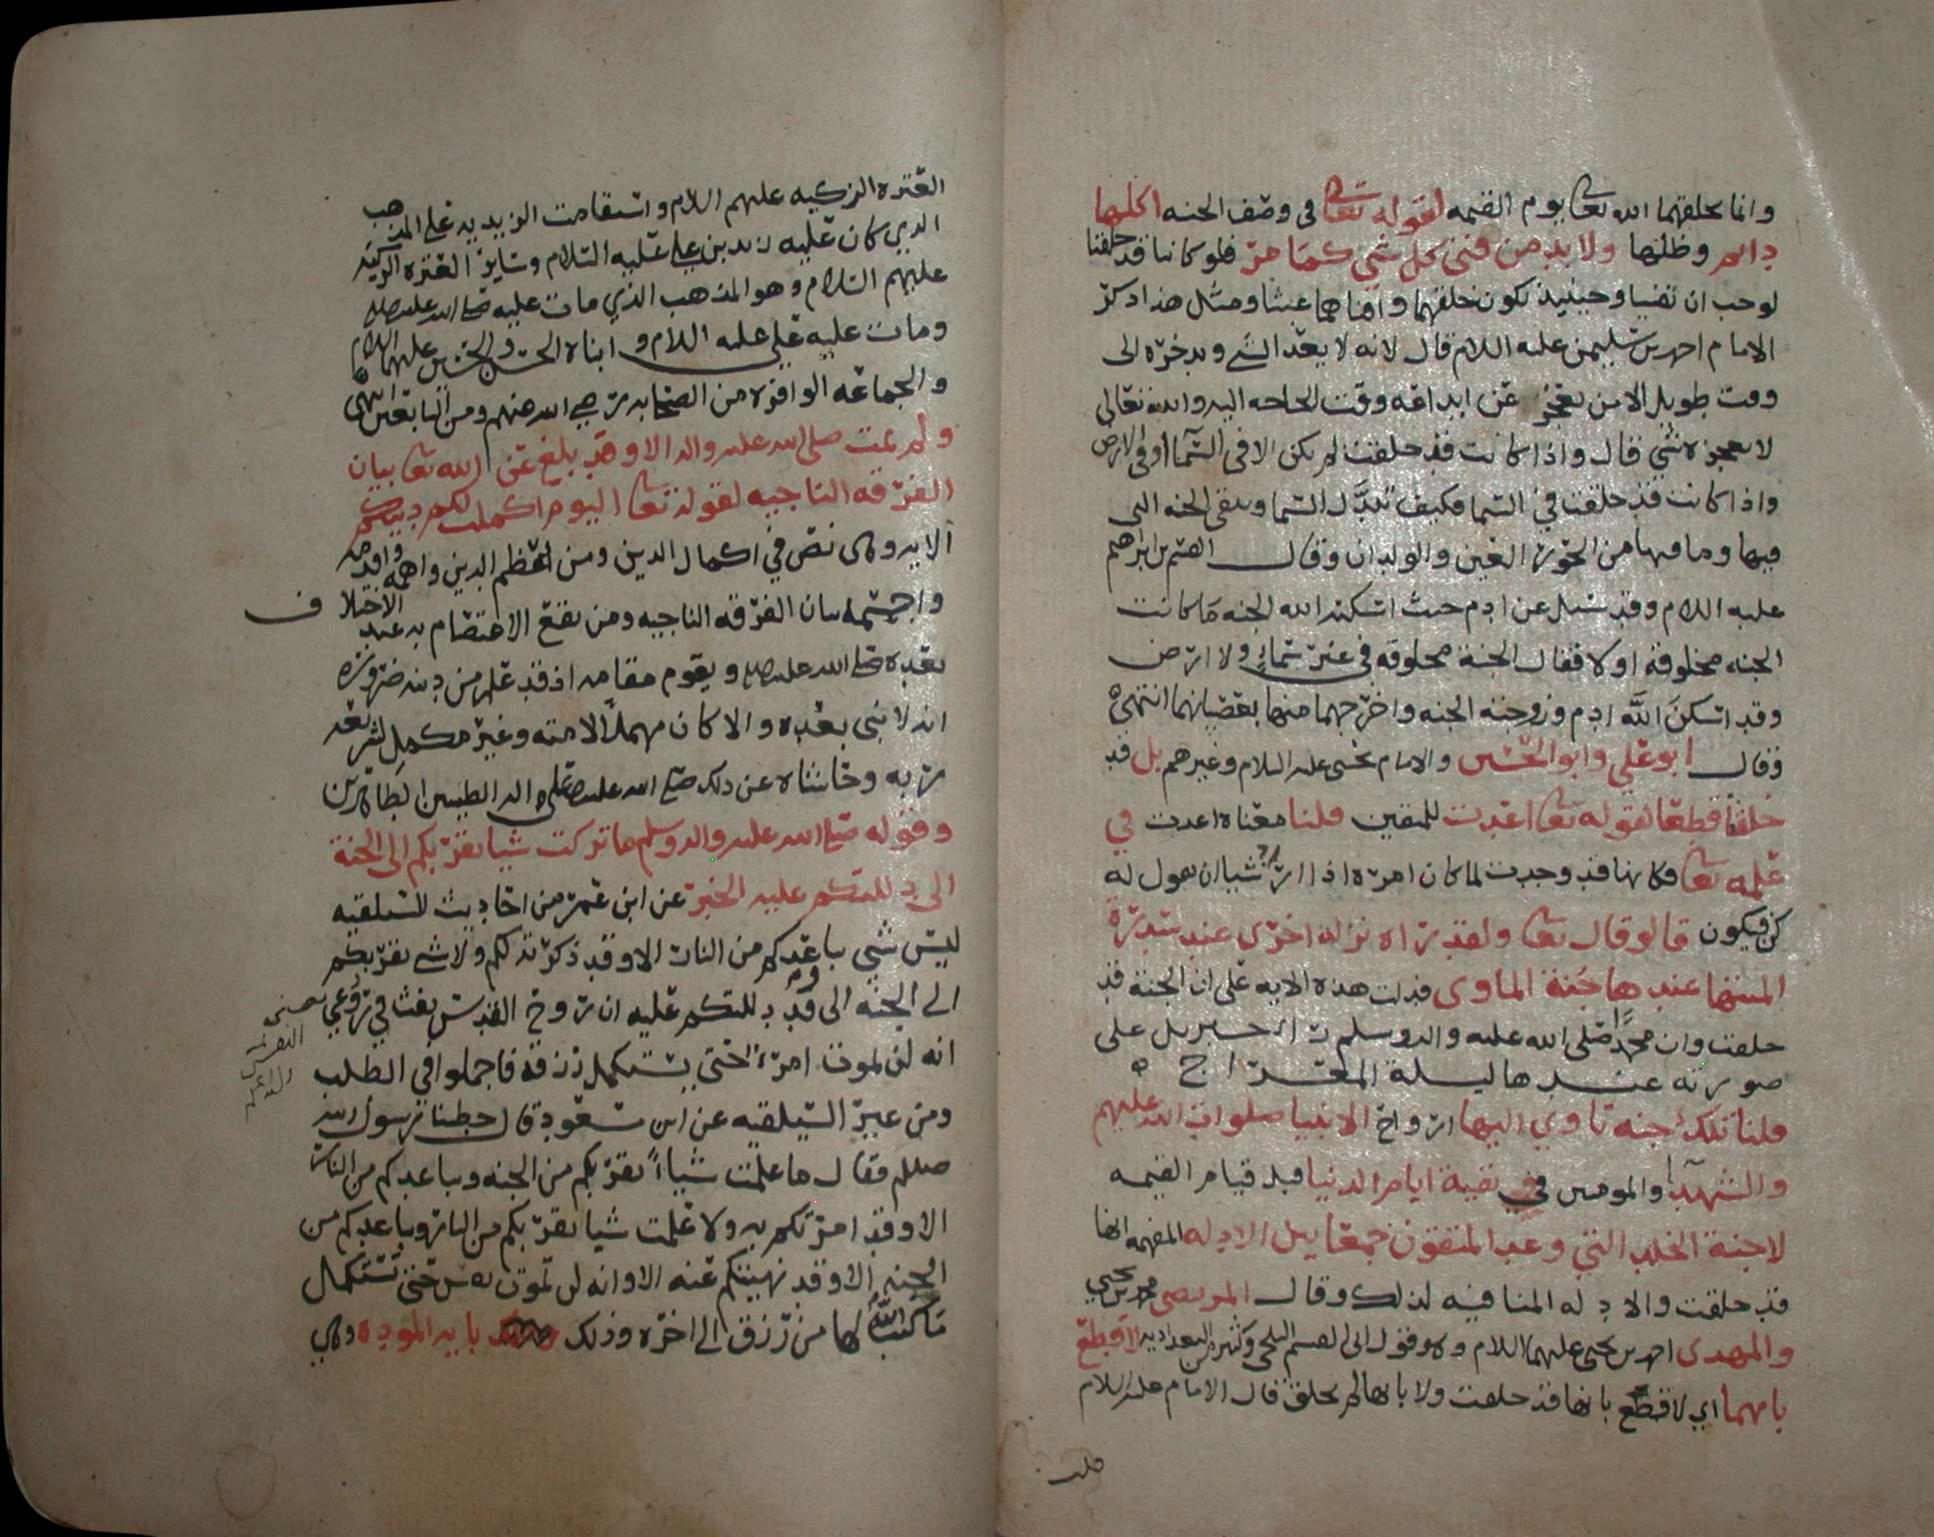 وانما يخلقهما الله تعا يوم القيمه لقوله تعا في وصف الجنه اكلها
دائم وظلها ولا بد من فنى كل شي كما مر فلو كانتا قد خلقتا
لوجب ان تفنيا وحينئذ تكون خلقهما وافناهما عبثا ومثل هذا ذكر
الامام احمد بن سليمن عليه السلام قال لانه لا يعد الشي ويدخره الى
وقت طويل الا من يعجز عن ابداعه وقت الحاجه اليه والله تعالى
لا يعجزه شي قال واذا كانت قد خلقت لم يكن الا في السما او في الارض
واذا كانت قد خلقت في السما فكيف تبدل السما وتبقى الجنه التي
فيها وما فيها من الحور العين والولدان وقال القسم بن ابراهيم
عليه السلام وقد سئل عن ادم حيث اسكنه الله الجنه ما كانت
الجنه مخلوقه او لا فقال الجنة مخلوقه في غير سماء ولا ارض
وقد اسكن الله ادم وزوجته الجنه واخرجهما منها بعصيانهما انتهى
وقال ابو علي وابو الحسين والامام يحيى عليه السلام وغيرهم بل قد
خلقتا قطعا لقوله تعا اعدت للمتقين قلنا معناه اعدت في
علمه تعا فكانها قد وجدت لما كان امره اذا اراد شيا ان يقول له
كن فيكون قالو قال تعا ولقد راه نزله اخرى عند سدرة
المنتها عندها جنة الماوى فدلت هذه الايه على ان الجنة قد
خلقت وان محمدًا صلى الله عليه واله وسلم راى جبريل على
صورته عندها ليلة المعراج
قلنا تلك جنه تاوي اليها ارواح الانبيا صلوات الله عليهم
والشهدآء والمومنين في بقية ايام الدنيا قبل قيام القيمه
لا جنة الخلد التي وعد المتقون جمعا بين الادله المفهمه انها
قد خلقت والادله المنافيه لذلك وقال المرتضى محمد بن يحيى
والمهدي احمد بن يحيى عليهما السلام وهو قول ابي القسم البلخي وكثير من البغداديه لا قطع
بايهما اي لا قطع بانها قد خلقت ولا بانها لم تخلق قال الامام عليه السلام
قلت
العتره الزكيه عليهم السلام واستقامت الزيديه على المذهب
الذي كان عليه زيد بن علي عليه السلام وساير العتره الزكيه
عليهم السلام وهو المذهب الذي مات عليه صلى الله عليه
ومات عليه علي عليه السلام وابناه الحسن والحسين عليهما السلام
والجماعه الوافره من الصحابه رضي الله عنهم ومن التابعين انتهى
ولم يمت صلى الله عليه واله الا وقد بلغ عن الله تعا بيان
الفرقه الناجيه لقوله تعا اليوم اكملت لكم دينكم
الايه وهي نص في اكمال الدين ومن اعظم الدين واهمه واقدمه
واجسمه بيان الفرقه الناجيه ومن يقع الاعتصام به عند الاختلاف
بعده صلى الله عليه ويقوم مقامه اذ قد علم من دينه ضرورة
انه لا نبي بعده والا كان مهملًا لامته وغير مكمل لشريعة
ربه وحاشاه عن ذلك صلى الله عليه وعلى اله الطيبين الطاهرين
وقوله صلى الله عليه واله وسلم ما تركت شيا يقربكم الى الجنة
الى دللتكم عليه الخبر عن ابن عمر من احاديث السيلقيه
ليس شي باعدكم من النار الا وقد ذكرته لكم ولا شي يقربكم
الى الجنه الى وقد دللتكم عليه ان روح القدس نفث في روعي
انه لن يموت امرء حتى يستكمل رزقه فاجملوا في الطلب
ومن غير السيلقيه عن ابن مسعود قال خطبنا رسول الله
صللم فقال ما علمت شيأً يقربكم من الجنه ويباعدكم من النار
الا وقد امرتكم به ولا علمت شيا يقربكم من النار ويباعدكم من
الجنه الا وقد نهيتكم عنه الا وانه لن تموت نفس حتى تستكمل
ما كتب الله لها من رزق الى اخره وذلك بايه الموده وهي